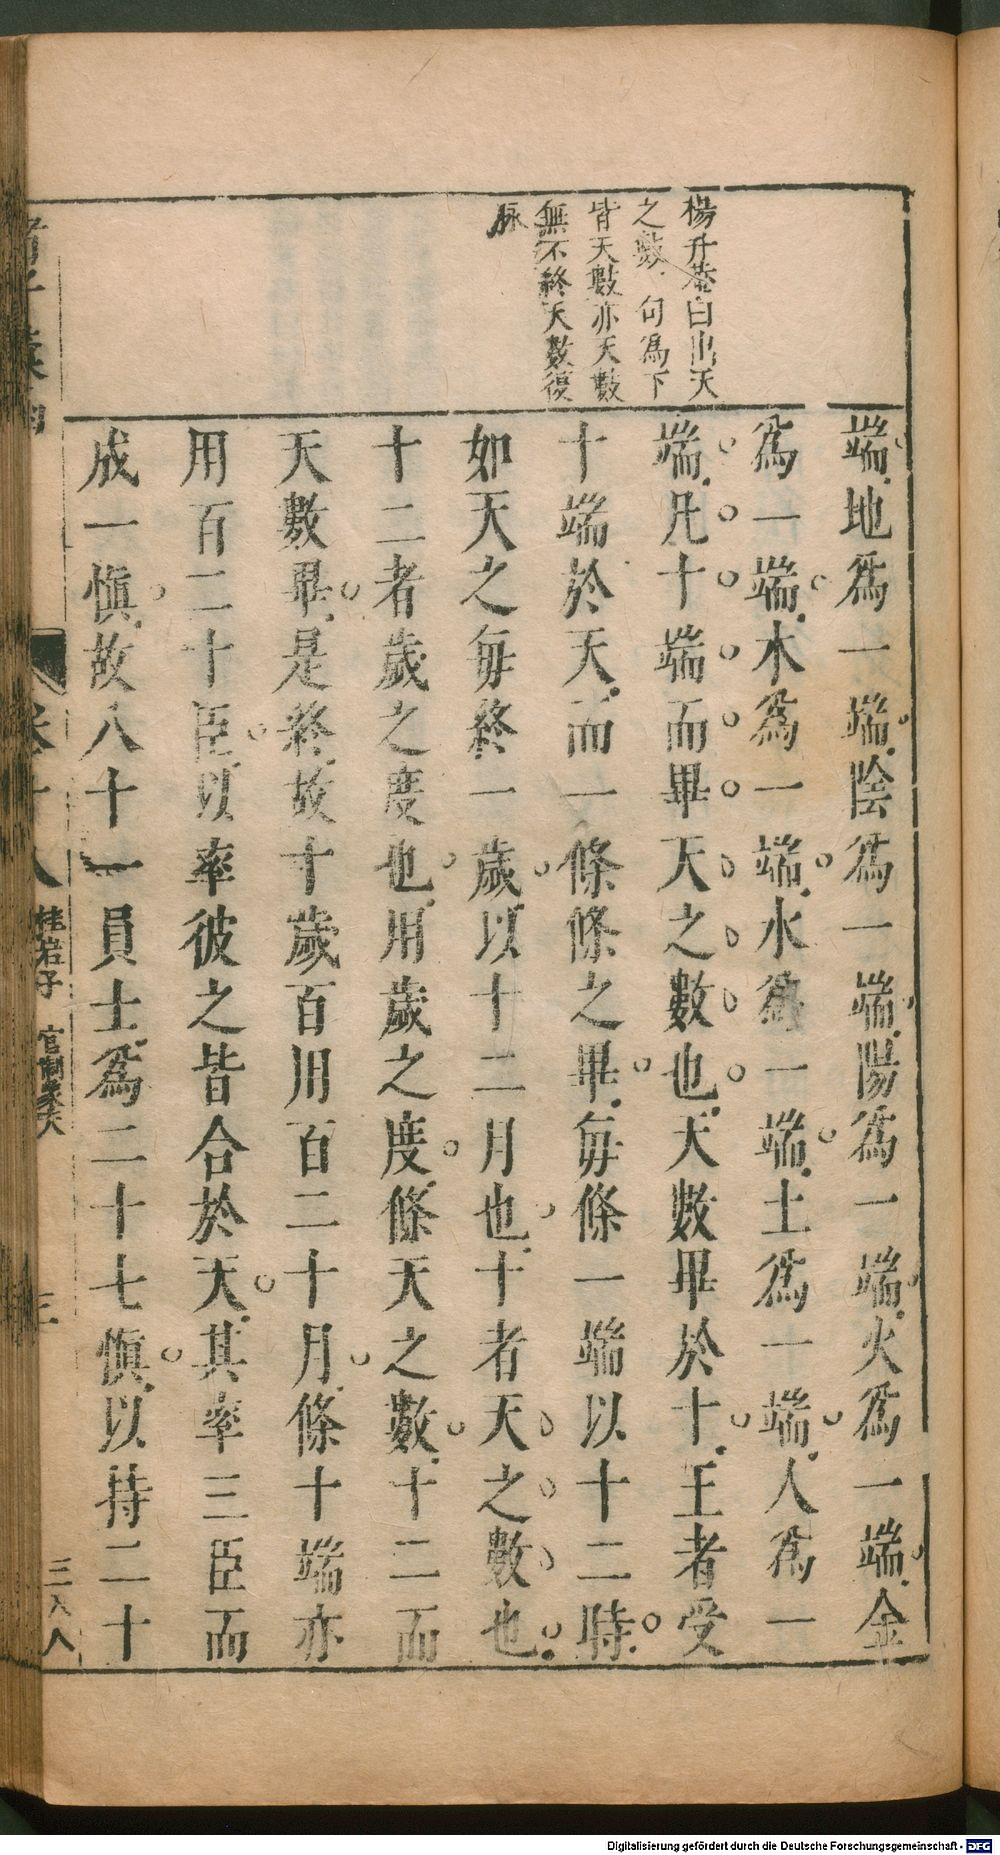 楊升菴曰出天
之數句爲下
皆天數亦天數
無不終天數復
脉
端地爲一端陰爲一端陽爲一端火爲一端金
爲一端木爲一端水爲一端土爲一端人爲一
端凡十端而畢天之數也天數畢於十王者受
十端於天而一條條之畢每條一端以十二時
如天之每終一歲以十二月也十者天之數也
十二者歲之度也用歲之度條天之數十二而
天數畢是終故十歲百用百二十月條十端亦
用百二十臣以率彼之皆合於天其率三臣而
成一愼故八十一員士爲二十七愼以持二十
卷十八
桂岩子
官制象天
三
三八八
Digitalisierung gefördert durch die Deutsche Forschungsgemeinschaft - DFG